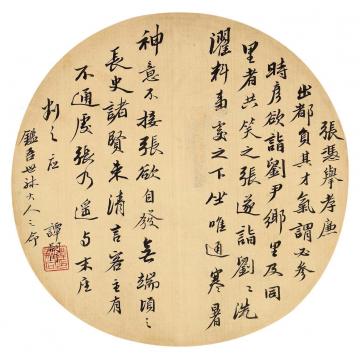 張憑舉孝廉
出都負其才氣謂必參
時彥欲詣劉尹鄉里及同
舉者共笑之張遂詣劉劉洗
濯料事處之下坐唯通寒暑
神意不接張欲自發無端頃之
長史諸賢來清言客主有
不通處張乃遙於末座
判之應
鑑吾世叔大人之命
譚